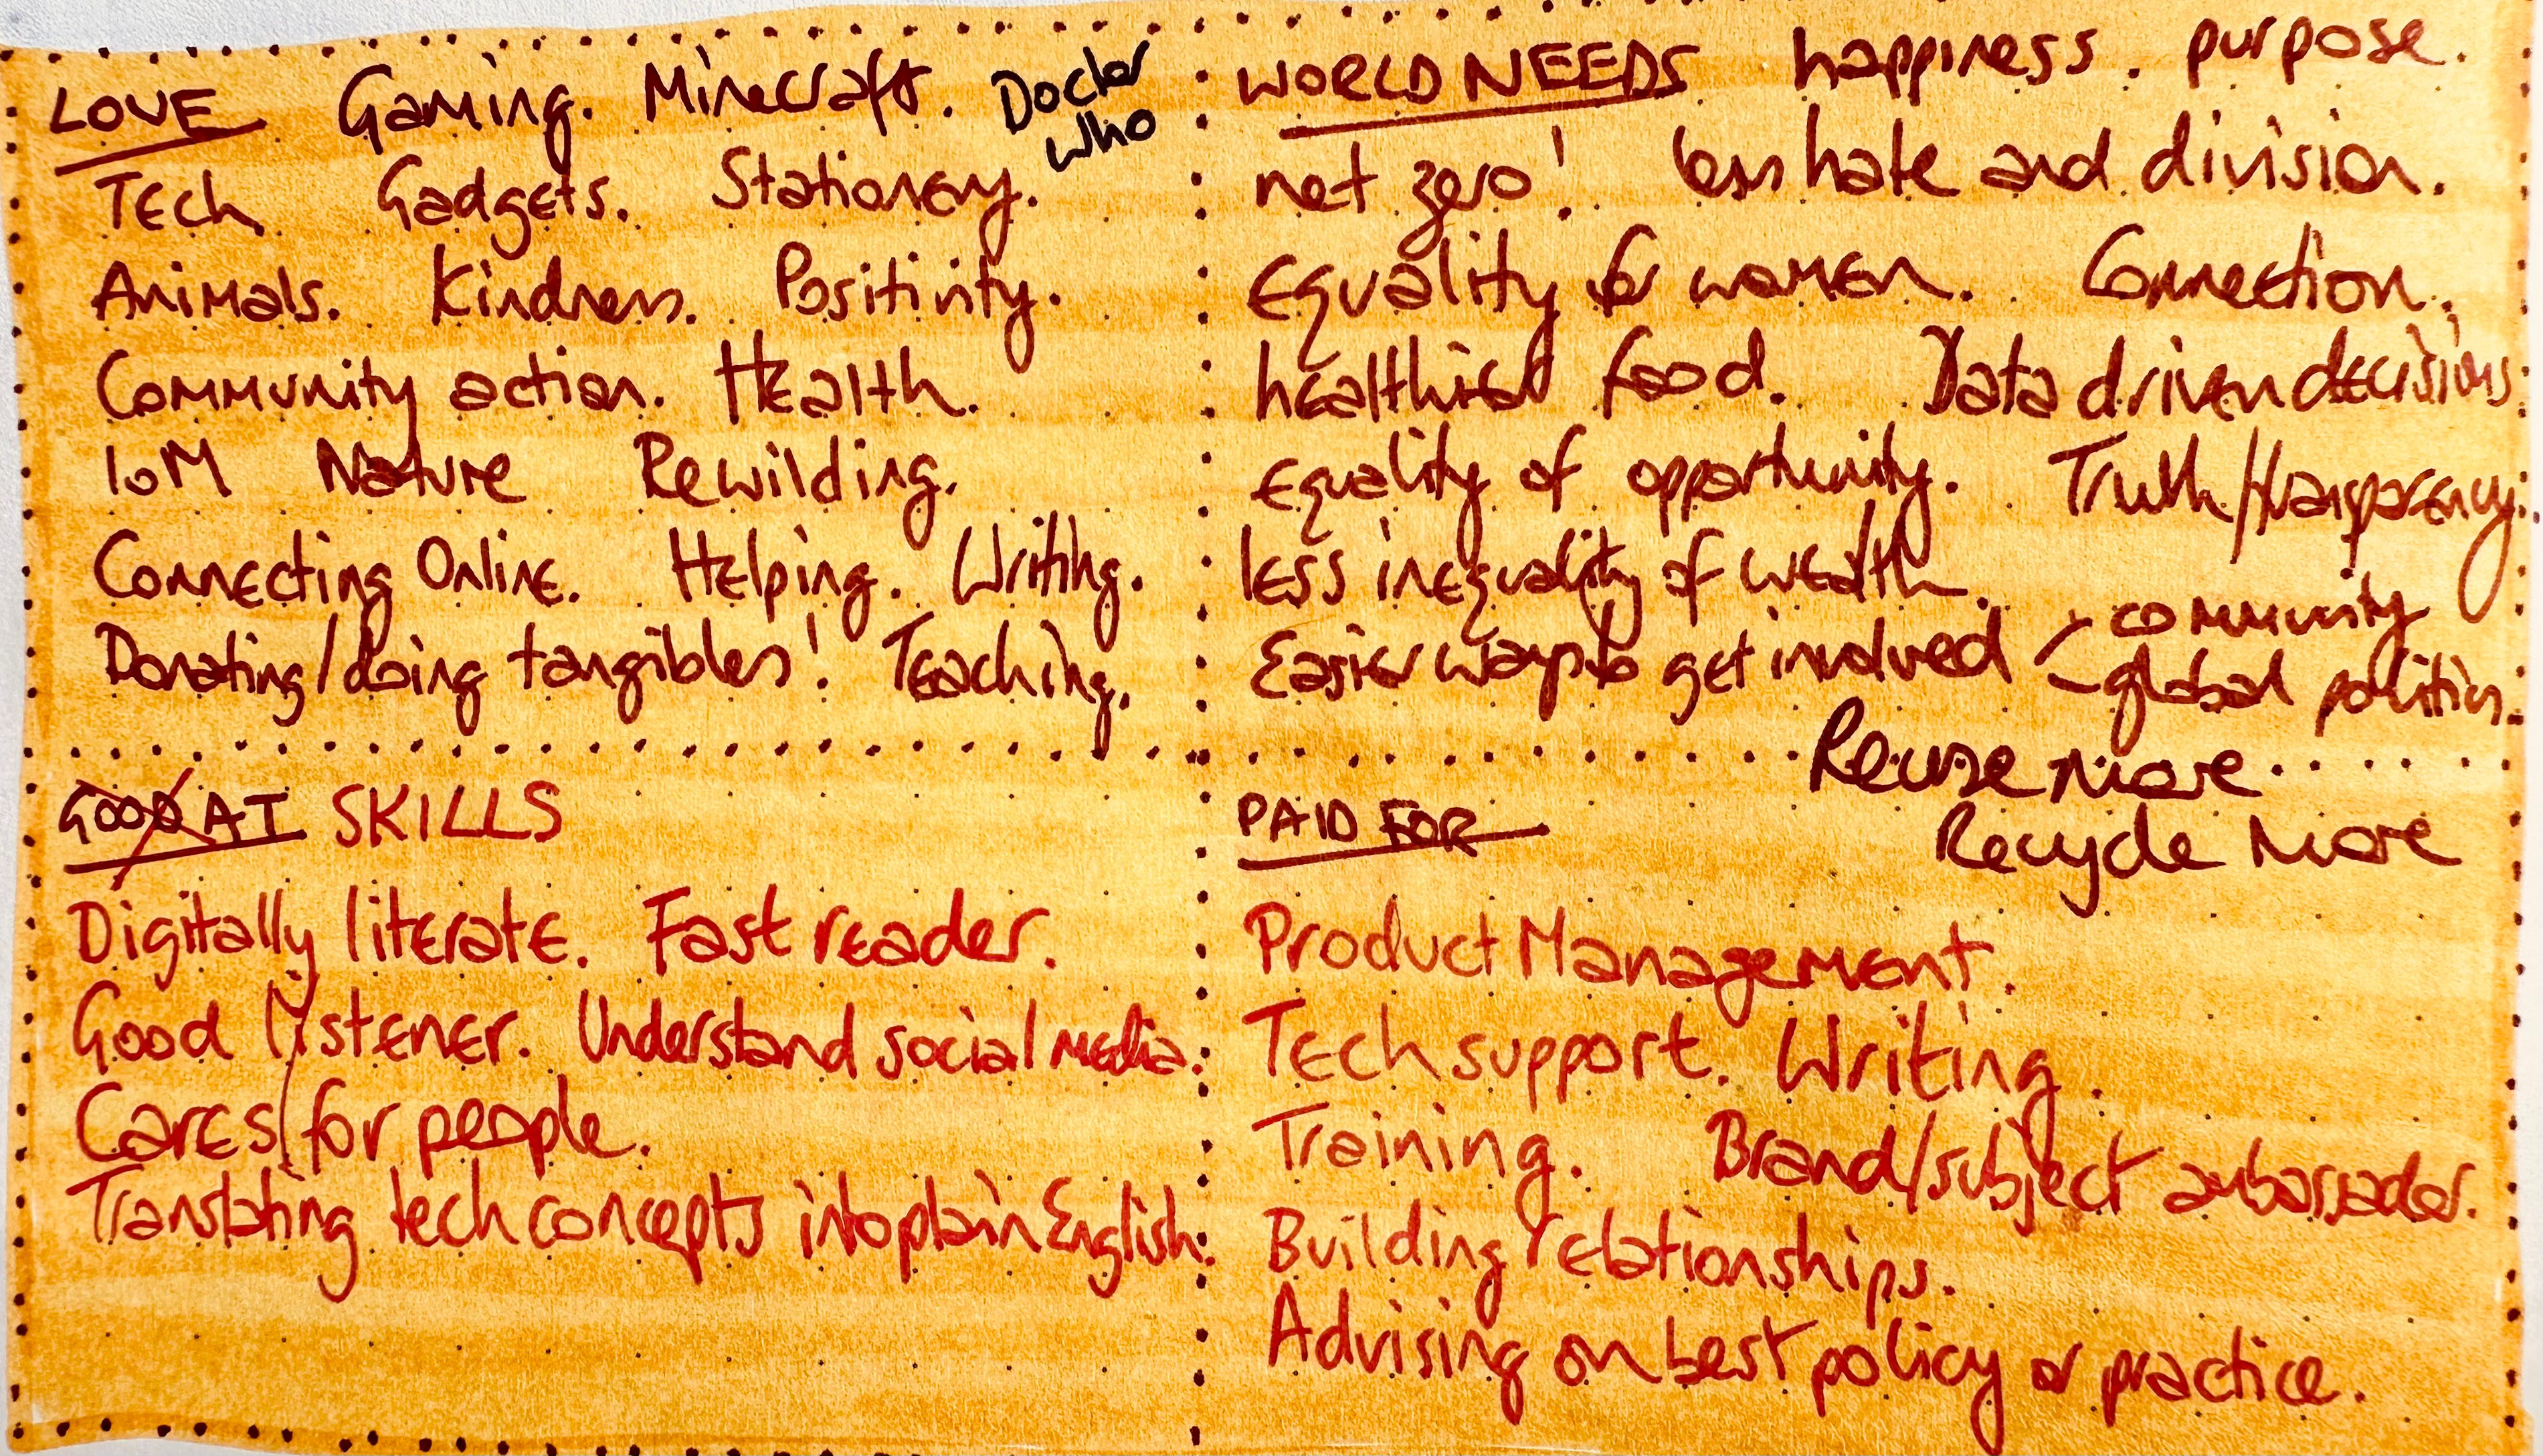 LOVE Gaming. Minecraft. Doctor Who
Tech Gadgets. Stationery.
Animals. Kindness. Positivity.
Community action. Health.
IoM Nature Rewilding.
Connecting Online. Helping. Writing.
Donating/doing tangibles! Teaching.
WORLD NEEDS happiness. purpose.
net zero! less hate and division.
Equality for women. Connection.
healthier food. Data driven decisions
Equality of opportunity. Truth/transparency.
less inequality of wealth.
Easier ways to get involved < community
global politics.
Reuse more
Recycle more
GOOD AT SKILLS
Digitally literate. Fast reader.
Good listener. Understand social media.
Cares for people.
Translating tech concepts into plain English.
PAID FOR
Product Management.
Tech support. Writing.
Training. Brand/subject ambassador.
Building relationships.
Advising on best policy or practice.